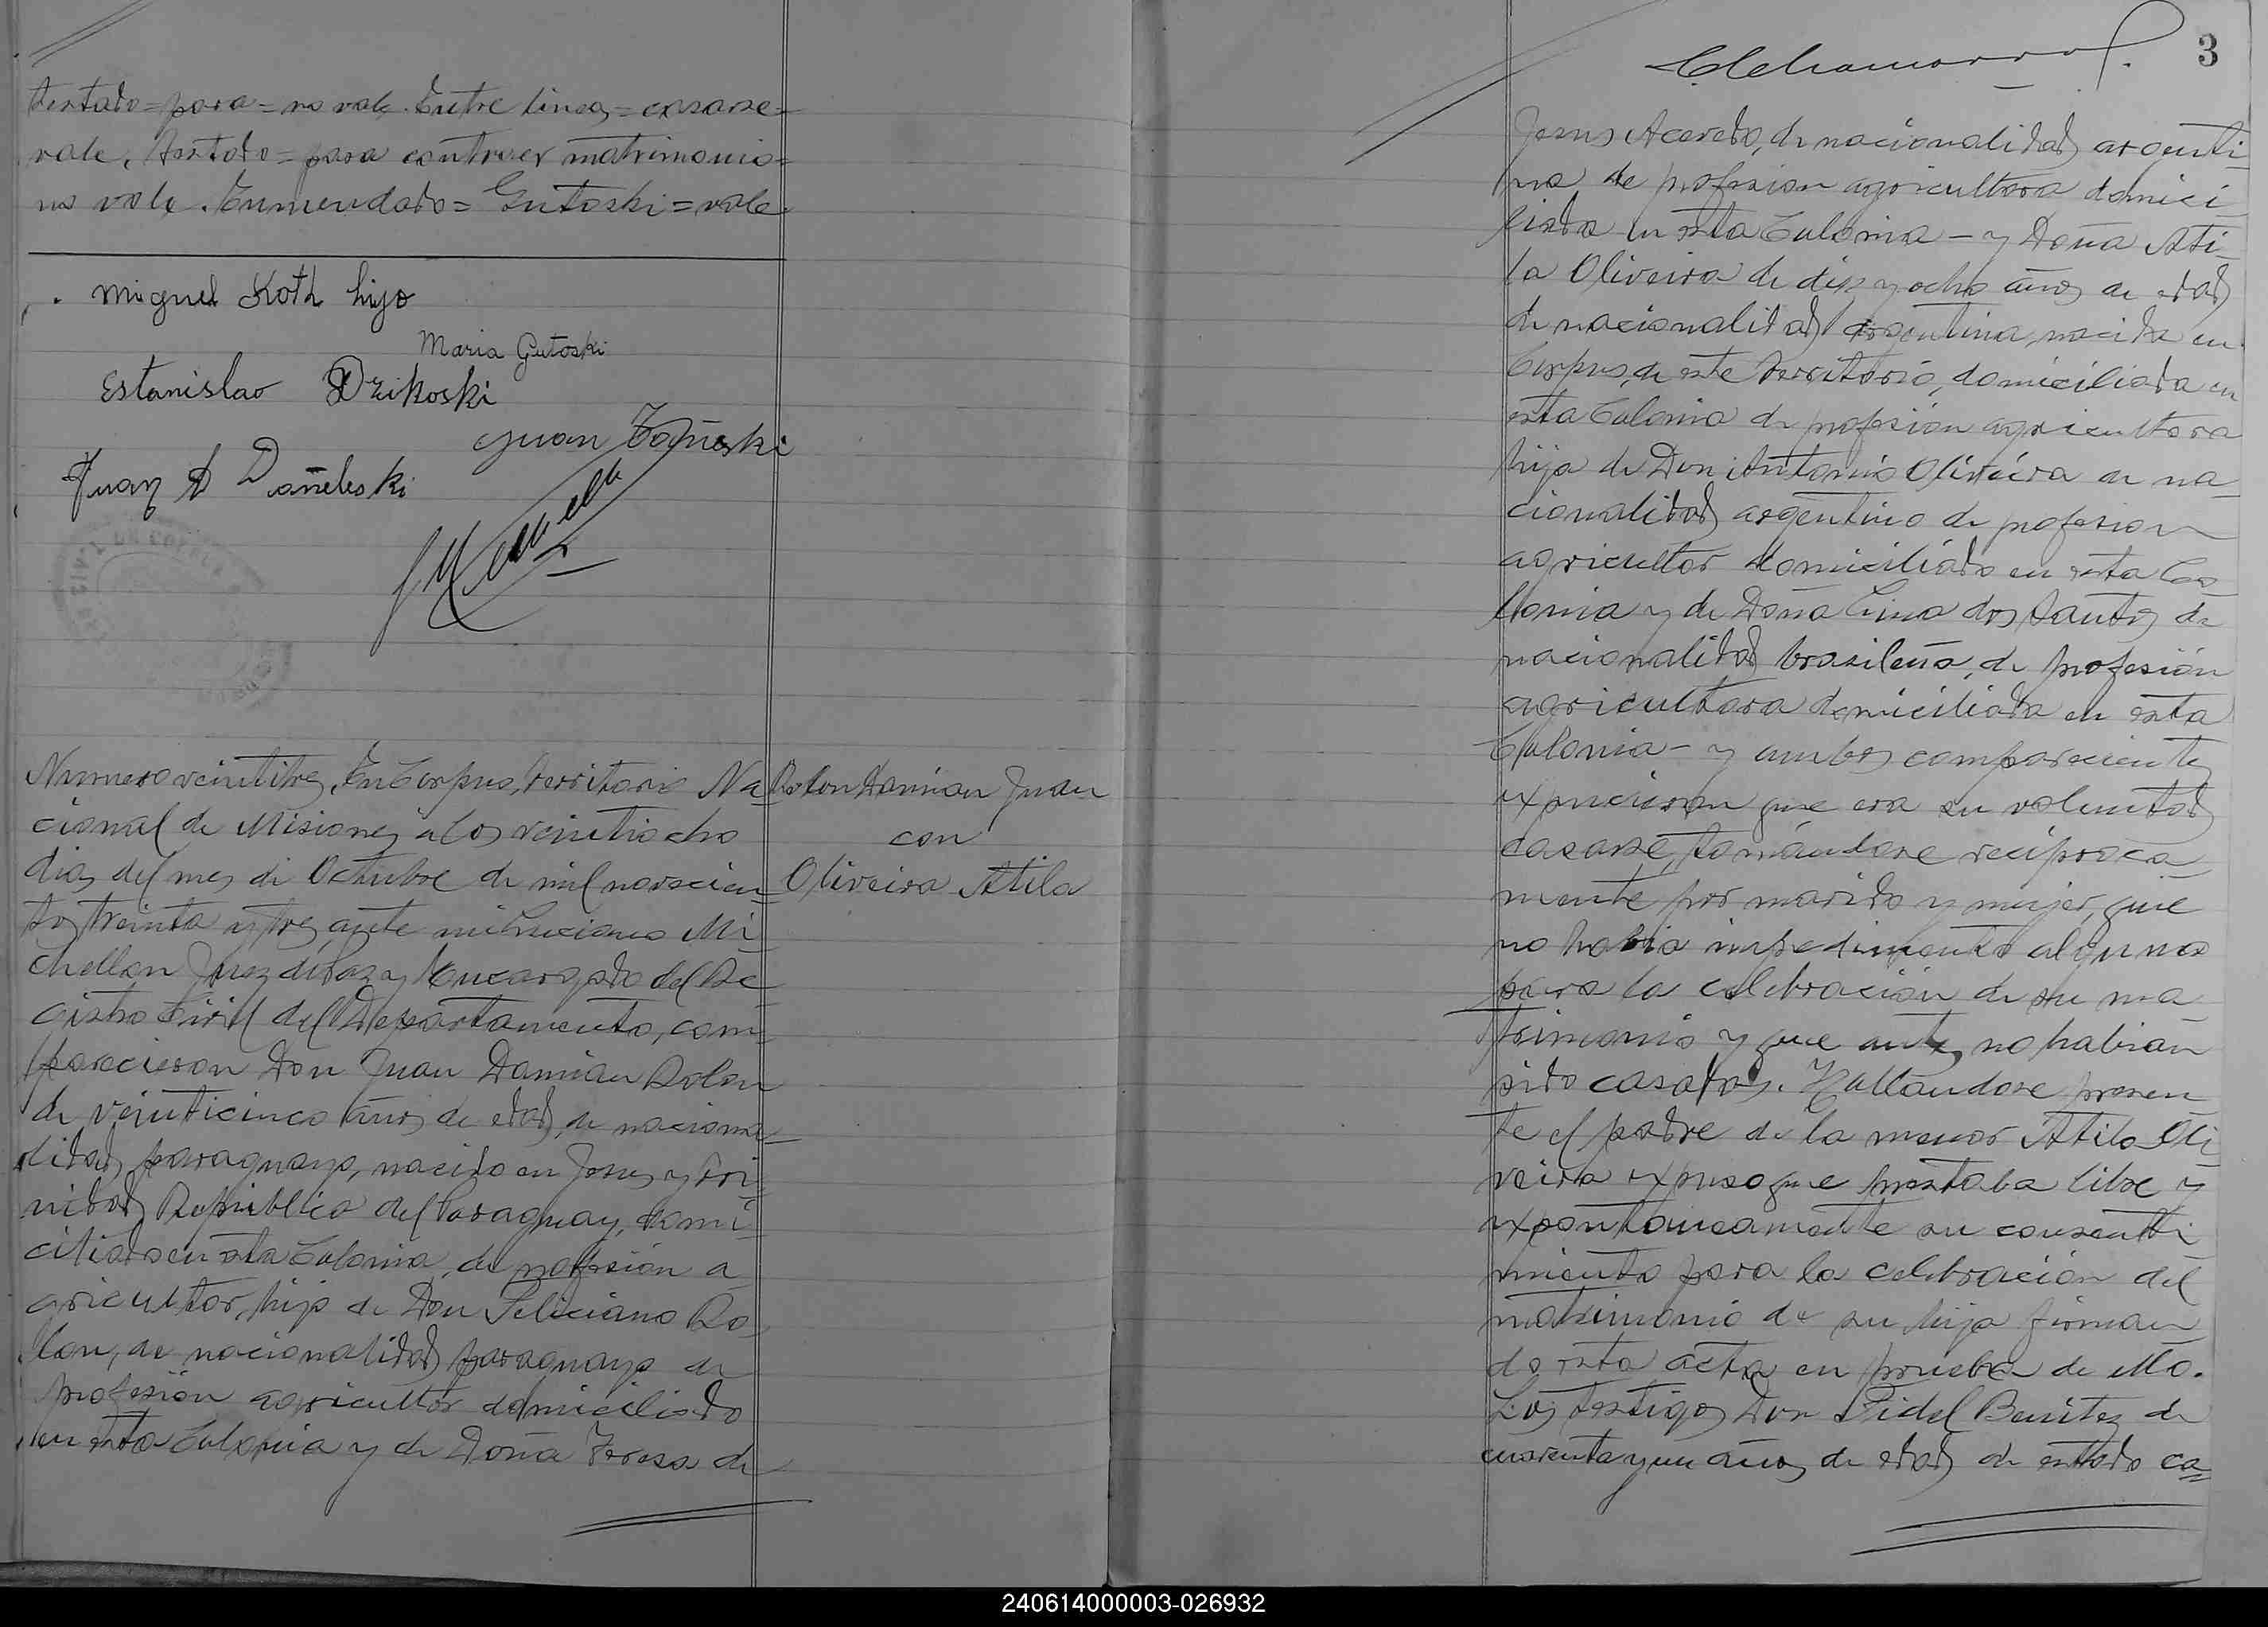 testado=para=no vale. Entre lineas=casarse=
vale. Testado=para contraer matrimonio=
no vale. Enmendado=Gutoski=vale.
Miguel Koth hijo
Maria Gutoski
Estanislao Dzikoski
Juan
Juan A Dañeleski
Numero veintitres. En Corpus, Territorio Na
cional de Misiones a los veintiocho
dias del mes de Octubre de mil novecien
tos treinta y tres, ante mi Luciano Mi
chellon Juez de Paz y Encargado del Re
gistro Civil del Departamento, com
parecieron Don Juan Damian Rolon
de veinticinco años de edad, de naciona
lidad paraguayo, nacido en Jesus y Tri
nidad Republica del Paraguay, domi
ciliado en esta Colonia, de profesión a
gricultor, hijo de Don Feliciano Ro
lon, de nacionalidad paraguayo de
profesión agricultor domiciliado
en esta Colonia y de Doña Teresa de
Rolon Damian Juan
con
Oliveira Atila
3
Jesus Acevedo, de nacionalidad argenti
na de profesion agricultora domici
liada en esta Colonia - y Doña Ati
la Oliveira de diez y ocho años de edad
de nacionalidad argentina, nacida en
Corpus, de este territorio, domiciliada en
esta Colonia de profesión agricultora
hija de Don Antonio Oliveira de na
cionalidad argentino de profesion
agricultor domiciliado en esta Co
lonia y de Doña Lina dos Santos de
nacionalidad brasileña, de profesión
agricultora domiciliada en esta
Colonia - y ambos comparecientes
expusieron que era su voluntad
casarse, tomándose recíproca
mente por marido y mujer, que
no habia impedimento alguno
para la celebración de su ma
trimonio y que antes no habian
sido casados. Hallandose presen
te el padre de la menor Atila Oli
veira expuso que prestaba libre y
expontaneamente su consenti
miento para la celebración del
matrimonio de su hija firman
do esta acta en prueba de ello.
Los testigos Don Fidel Benitez de
cuarenta y un años de edad de estado ca=
240614000003-026932